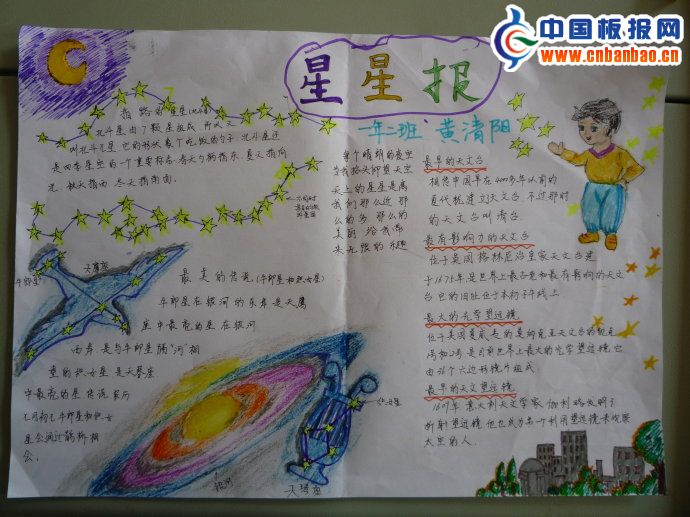 中国板报网
www.cnbanbao.cn
星星报
一年二班 黄清阳
指路的星星(北斗星)
北斗星由了颗星组成 所以又
叫北斗七星 它的形状象个吃饭的勺子 北斗星还
是四季星空的一个重要标志 春天勺柄指东 夏天指南
秋天指西 冬天指南面
每个晴朗的夜空
当我抬头仰望天空
天上的星星是离
我们那么近 那
么的多 那么的
美丽 给我带
来无限的乐趣
天鹰座
牛郎星
最美的传说(牛郎星和织女星)
牛郎星在银河的东岸是天鹰
座中最亮的星 在银河
西岸是与牛郎星隔"河"相
望的织女星 是天琴座
中最亮的星 传说 农历
七月初七牛郎星和织女
星会通过鹊桥相
会。
织女星
银河
天琴座
最早的天文台
相传中国早在4000多年以前的
夏代就建立天文台 不过那时
的天文台叫清台
最有影响力的天文台
位于英国格林尼治皇家天文台建
于1675年是世界上最古老和最有影响的天文
台 它的旧址位于本初子午线上
最大的光学望远镜
位于美国夏威夷的莫纳克亚天文台的凯克
1号和2号是目前世界上最大的光学望远镜 它
由36个六边形镜片组成
最早的天文望远镜
1609年 意大利天文学家伽利略发明了
折射望远镜 他也成为第一个利用望远镜来观察
太空的人.